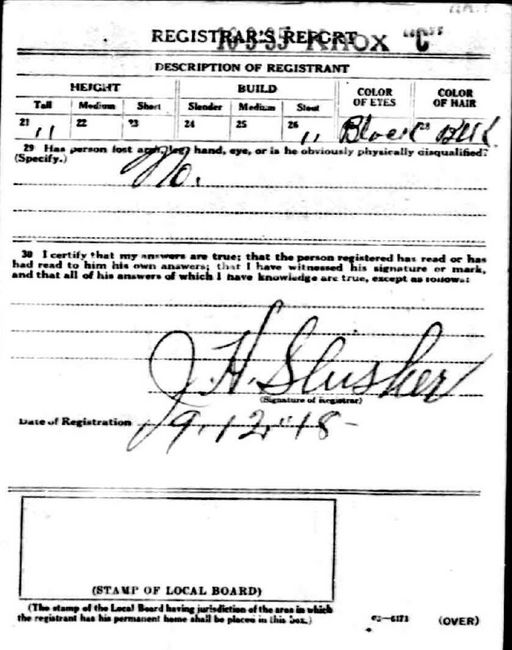 REGISTRAR'S REPORT
10-3-35 KNOX "C"
DESCRIPTION OF REGISTRANT
HEIGHT BUILD COLOR OF EYES COLOR OF HAIR
Tall Medium Short Slender Medium Stout
21 " 22 23 24 25 26 " Black 28 BLK
29 Has person lost arm, leg, hand, eye, or is he obviously physically disqualified?
(Specify.)
No.
30 I certify that my answers are true; that the person registered has read or has
had read to him his own answers; that I have witnessed his signature or mark,
and that all of his answers of which I have knowledge are true, except as follows:
J. H. Slusher
(Signature of Registrar)
Date of Registration 9-12-18-
(STAMP OF LOCAL BOARD)
(The stamp of the Local Board having jurisdiction of the area in which
the registrant has his permanent home shall be placed in this box.)
03—6171 (OVER)